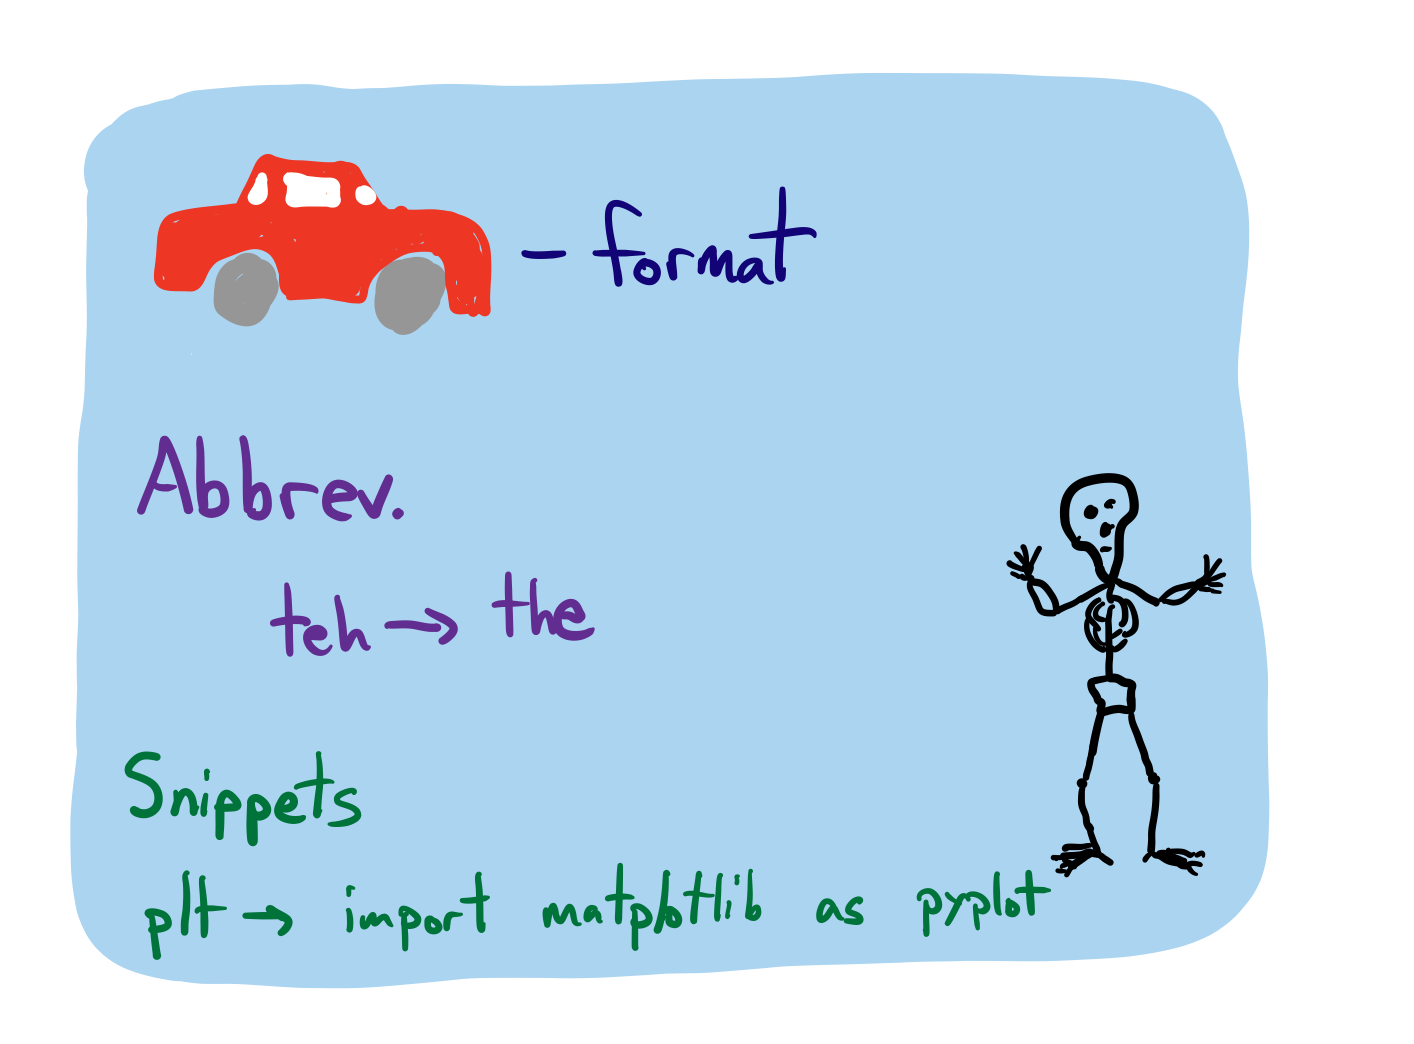 - format
Abbrev.
teh → the
Snippets
plt → import matplotlib as pyplot